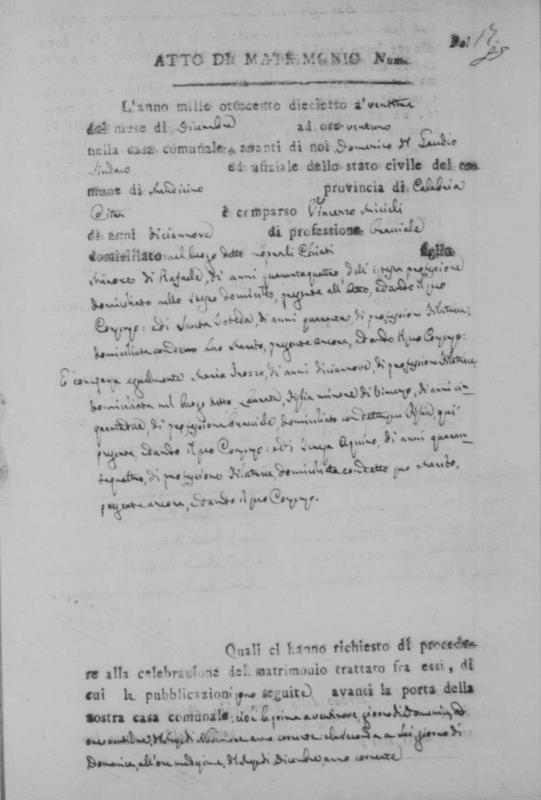 Doi 17
ATTO DI MATRIMONIO Num.
L'anno mille ottocento dieciotto a' ventitre
del mese di Dicembre ad ore ventuno
nella casa comunale, avanti di noi Domenico Del Gaudio
Sindaco ed ufiziale dello stato civile del co-
mune di Mendicino provincia di Calabria
Citra è comparso Vincenzo Micieli
di anni diciannove di professione Bracciale
domiciliato nel luogo detto Chiati figlio
minore di Rafaele, di anni quarantaquattro dell' istessa professione
domiciliato nello stesso domicilio, presente all' Atto, e dando il suo
Consenso: e di Santa, di anni quaranta, di professione Filatrice,
domiciliata con detto suo Marito, presente ancora, e dando il suo Consenso:
E' comparsa egualmente Maria, di anni diciannove, di professione Filatrice
domiciliata nel luogo detto Laurata, figlia minore di, di anni cin-
quantadue, di professione bracciale, domiciliato con detta sua Figlia, qui
presente, e dando il suo Consenso: e di Aquino, di anni quaran-
taquattro, di professione Filatrice, domiciliata con detto suo Marito,
presente ancora, e dando il suo Consenso.
Quali ci hanno richiesto di procede-
re alla celebrazione del matrimonio trattato fra essi, di
cui le pubblicazioni sono seguite avanti la porta della
nostra casa comunale: cioè la prima a ventinove, giorno di Domenica, ad
ore, del mese di Novembre anno corrente e la seconda a sei, giorno di
Domenica, all' ore medesime, del mese di Dicembre, anno corrente